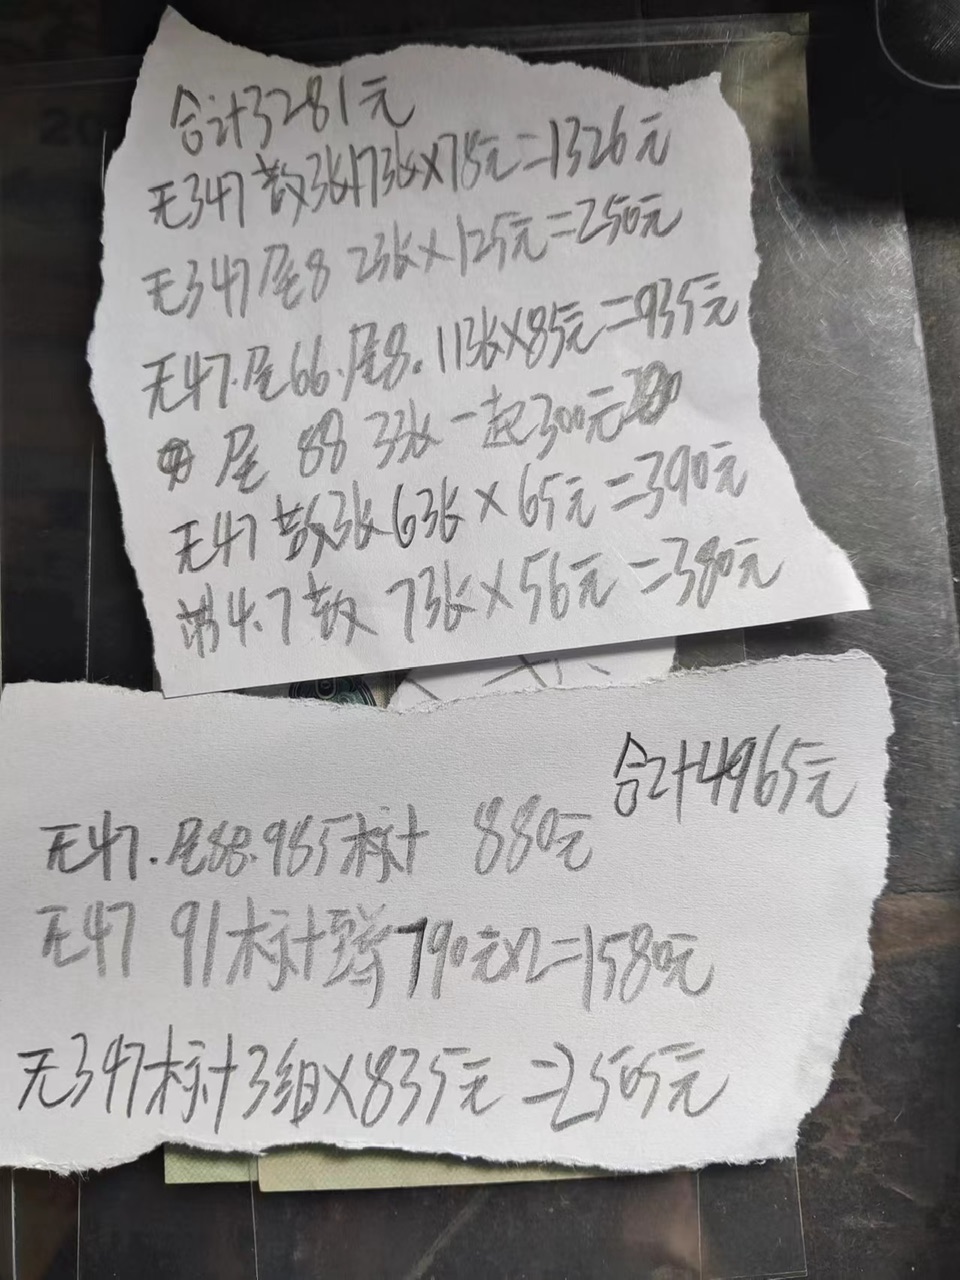 合计3281元
无347散3张17张×78元=1326元
无347尾8 2张×125元=250元
无47.尾66.尾8.11张×85元=935元
尾 88 3张一起300元
无47散3张6张×65元=390元
带4.7散 7张×56元=380元
合计4965元
无47.尾88.985标汁 880元
无47 91标汁 790元×2=1580元
无347标汁3组×835元=2505元